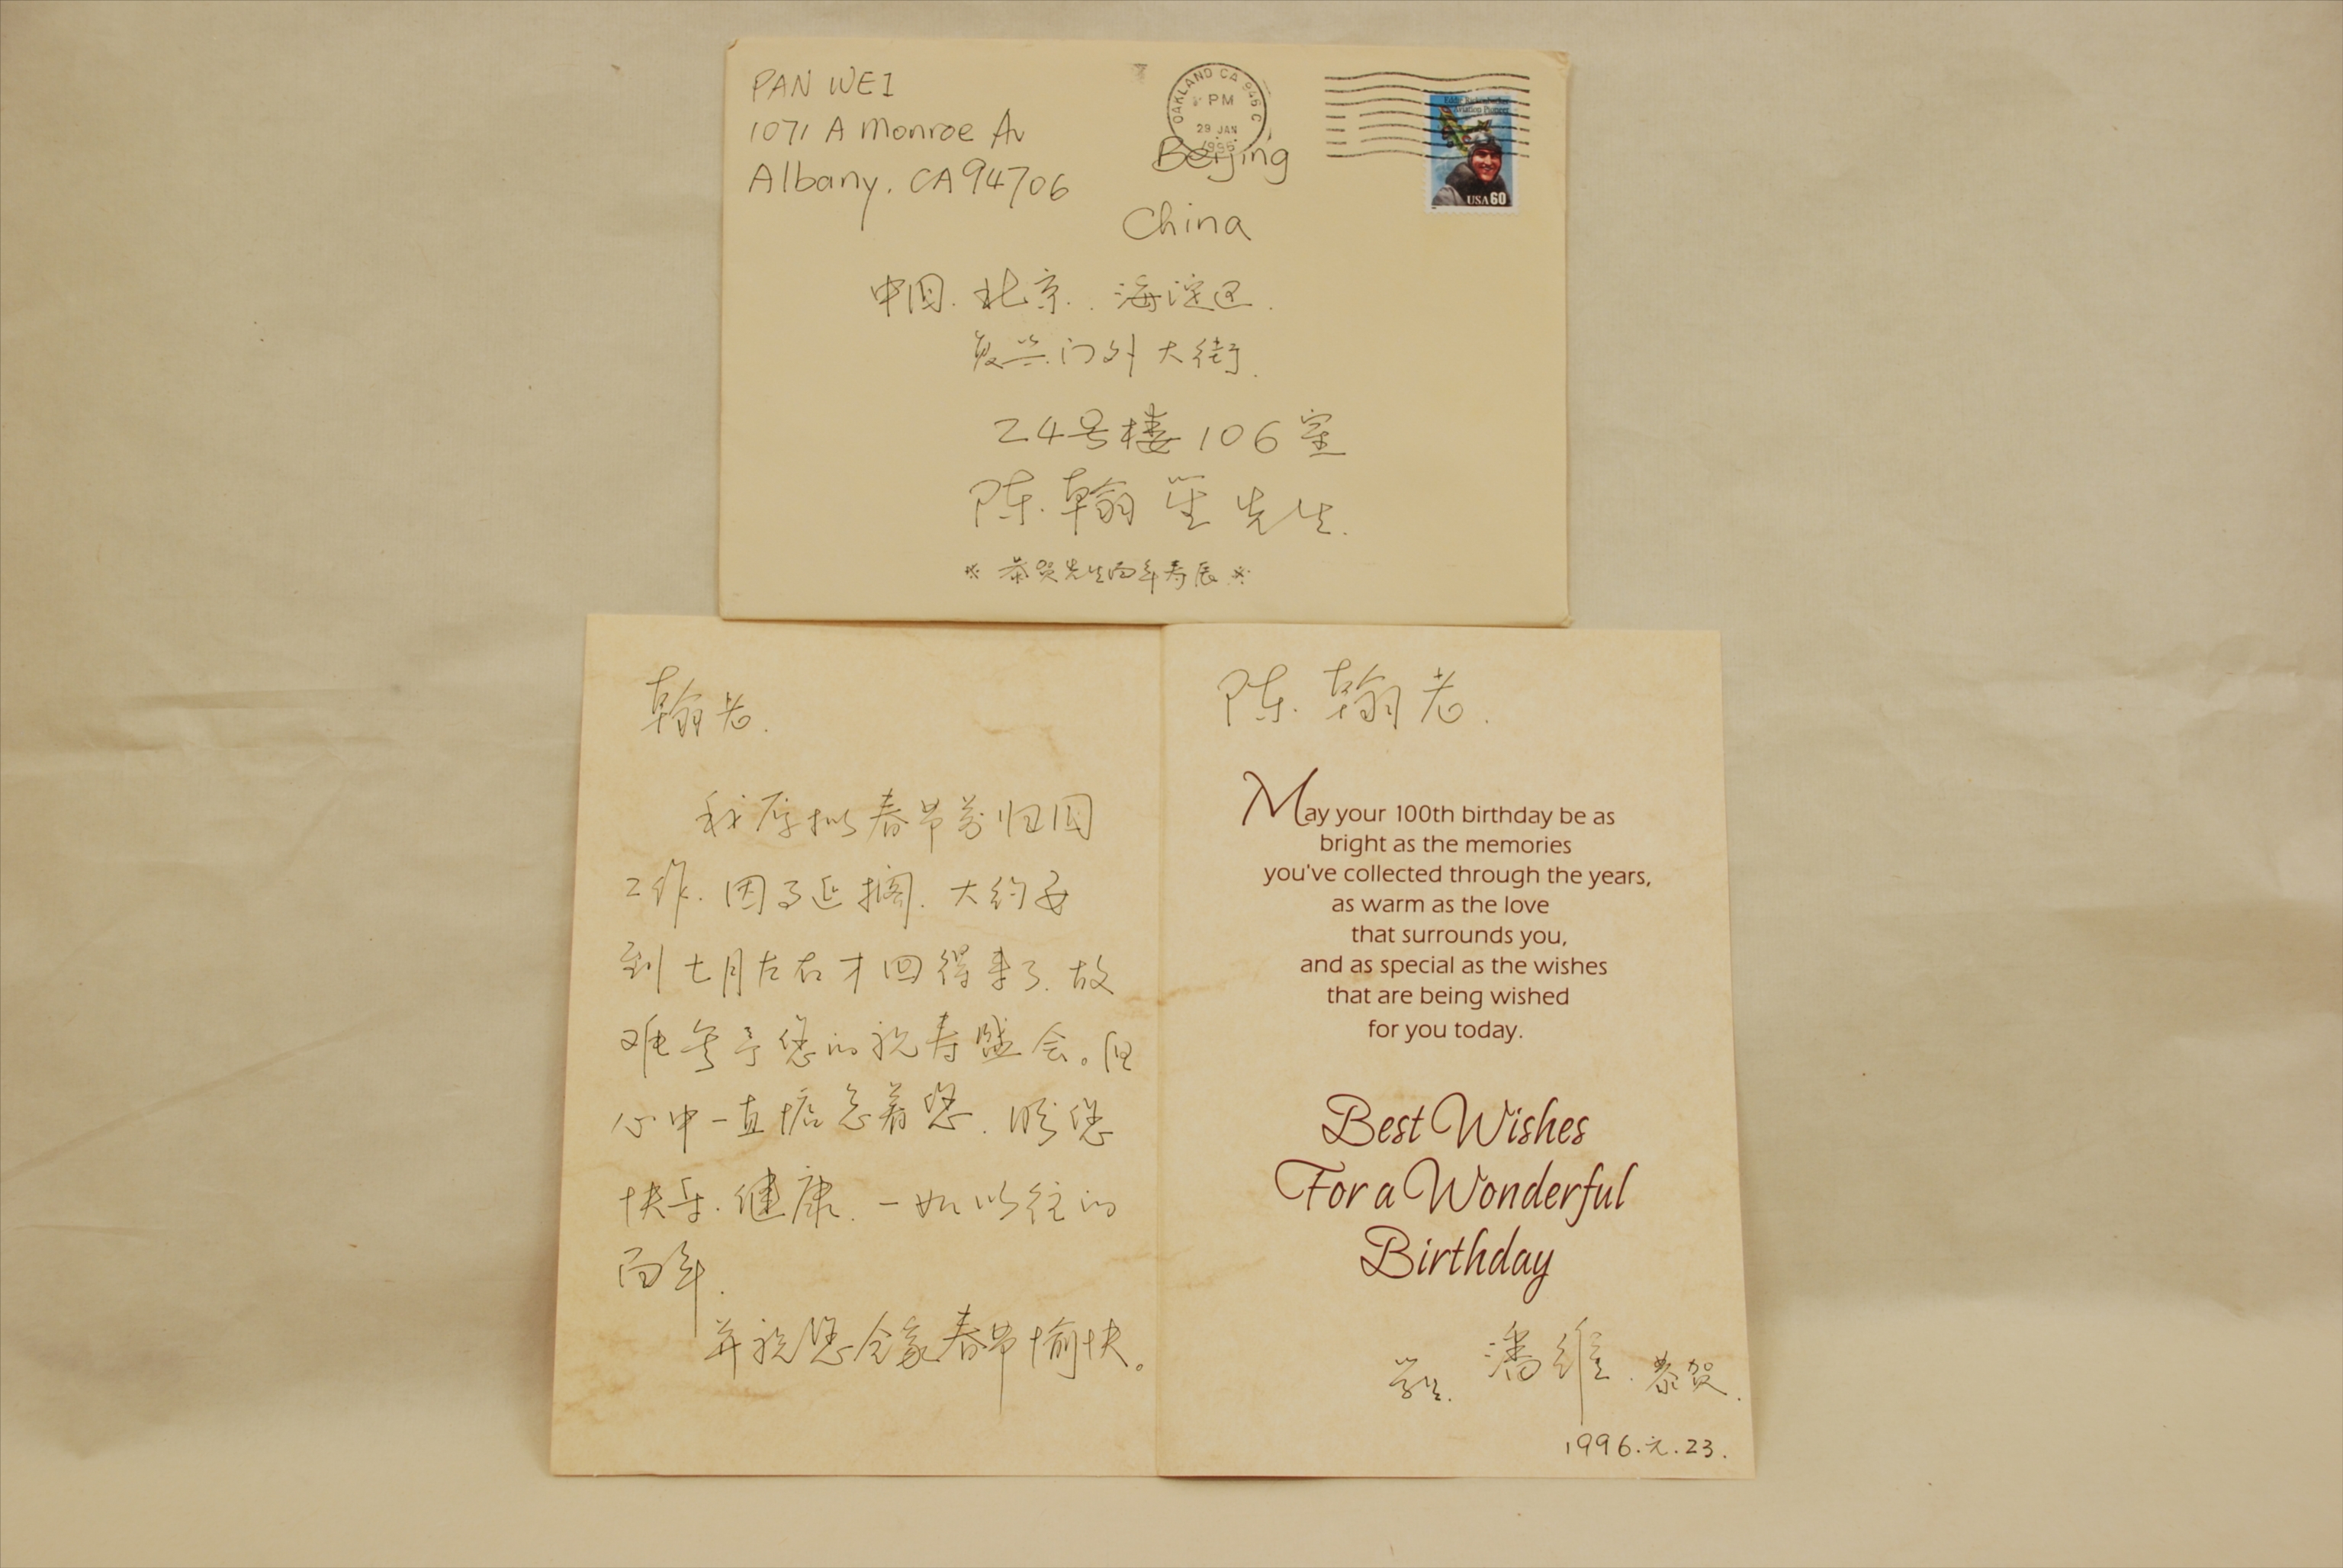 PAN WEI
1071 A Monroe Av
Albany, CA 94706
OAKLAND CA 945
PM
29 JAN
Beijing
China
Eddie Rickenbacker
Aviation Pioneer
USA 60
中国. 北京. 海淀区.
复兴门外大街.
24号楼 106室
陈翰笙先生.
※ 恭贺先生百年寿辰 ※
翰老.
我原拟春节前归国
工作. 因事延搁. 大约要
到七月左右才回得来了. 故
难参予您的祝寿盛会。但
心中一直惦念着您. 盼您
快乐. 健康. 一如以往的
百年.
并祝您全家春节愉快。
陈翰老.
May your 100th birthday be as
bright as the memories
you've collected through the years,
as warm as the love
that surrounds you,
and as special as the wishes
that are being wished
for you today.
Best Wishes
For a Wonderful
Birthday
学生. 潘维. 恭贺.
1996.元.23.